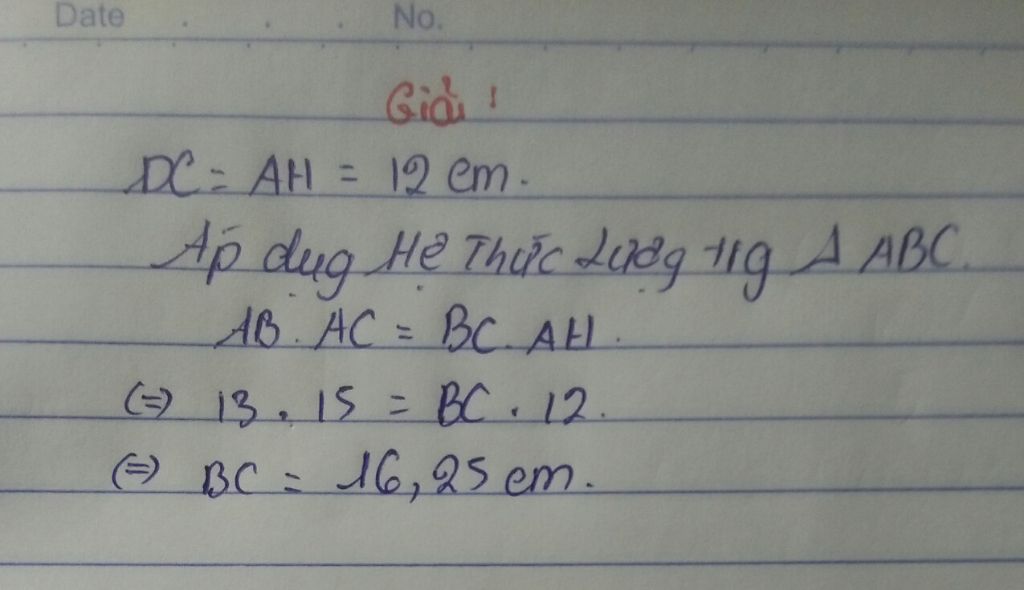 Date . . . No.
Giải !
DC = AH = 12 cm.
Áp dụg Hệ Thức Lượg trg Δ ABC.
AB . AC = BC . AH .
(=) 13 . 15 = BC . 12.
(=) BC = 16,25 cm.